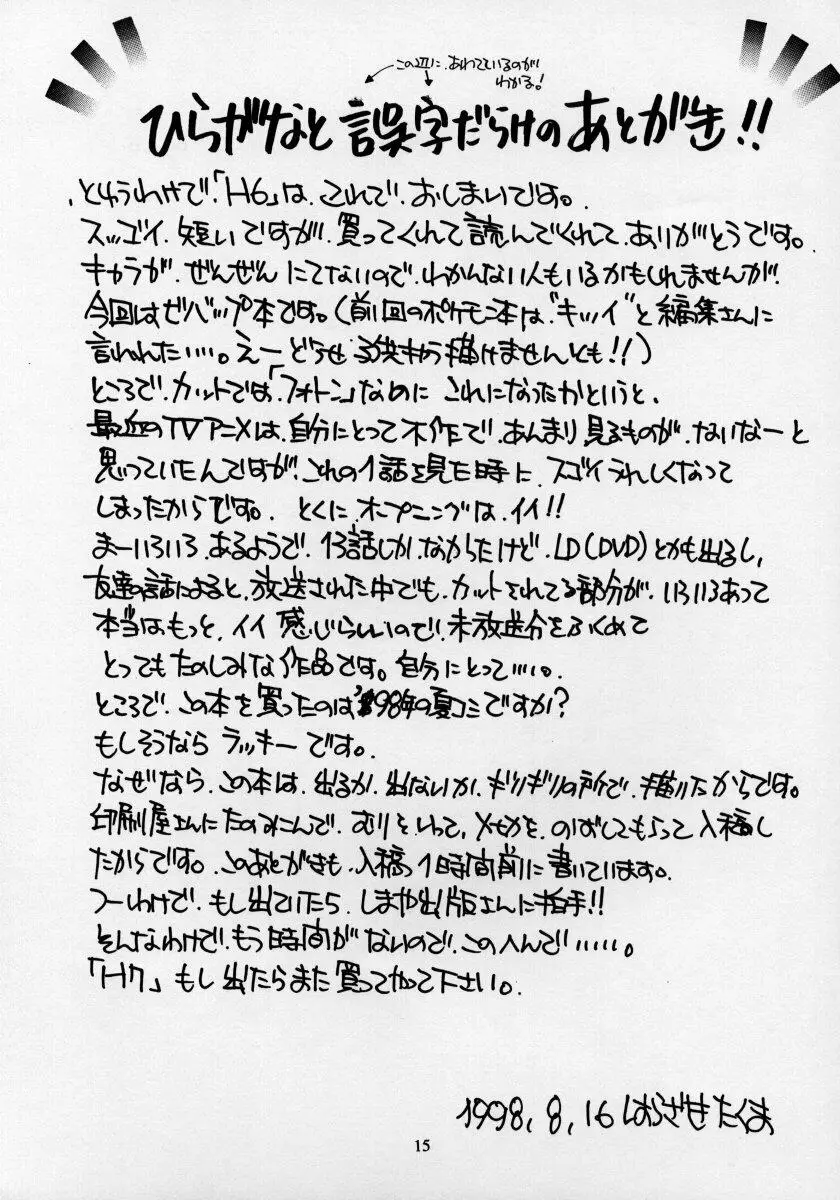 この辺に、あわてているのが
わかる!
ひらがなと誤字だらけのあとがき!!
とゆうわけで、「H6」は、これで、おしまいです。
スッゴイ、短いですが、買ってくれて読んでくれて、ありがとうです。
キャラが、ぜんぜん にてないので、わかんない人もいるかもしれませんが、
今回はビバップ本です。(前回のポケモン本は、"キツイ"と編集さんに
言われた….。えー どうせ 子供きゃら描けませんとも!!)
ところで、カットでは、「フォトン」なのに これになったかというと、
最近のTVアニメは、自分にとって不作で、あんまり見るものが、ないなーと
思っていたんですが、これの1話を見た時に、スゴイうれしくなって
しまったからです。 とくに オープニングは、イイ!!
まーいろいろ、あるようで、13話しか、なかったけど、LD(DVD)とかも出るし、
友達の話によると、放送された中でも、カットされてる部分が、いろいろあって
本当は、もっと、イイ 感じらしいので、未放送分をふくめて
とってもたのしみな作品です。自分にとって….。
ところで、この本を買ったのは'98年の夏コミですか?
もしそうなら ラッキーです。
なぜなら、この本は、出るか、出ないか、ギリギリの所で、描いたからです。
印刷屋さんにたのみこんで、むりをいって、〆切を、のばしてもらって入稿し
たからです。このあとがきも、入稿、1時間前に書いています。
つーわけで、もし出ていたら、しまや出版さんに拍手!!
そんなわけで、もう時間がないので、このへんで…..。
「H7」もし出たらまた買ってやって下さい。
1998,8,16 はらざきたくま
15